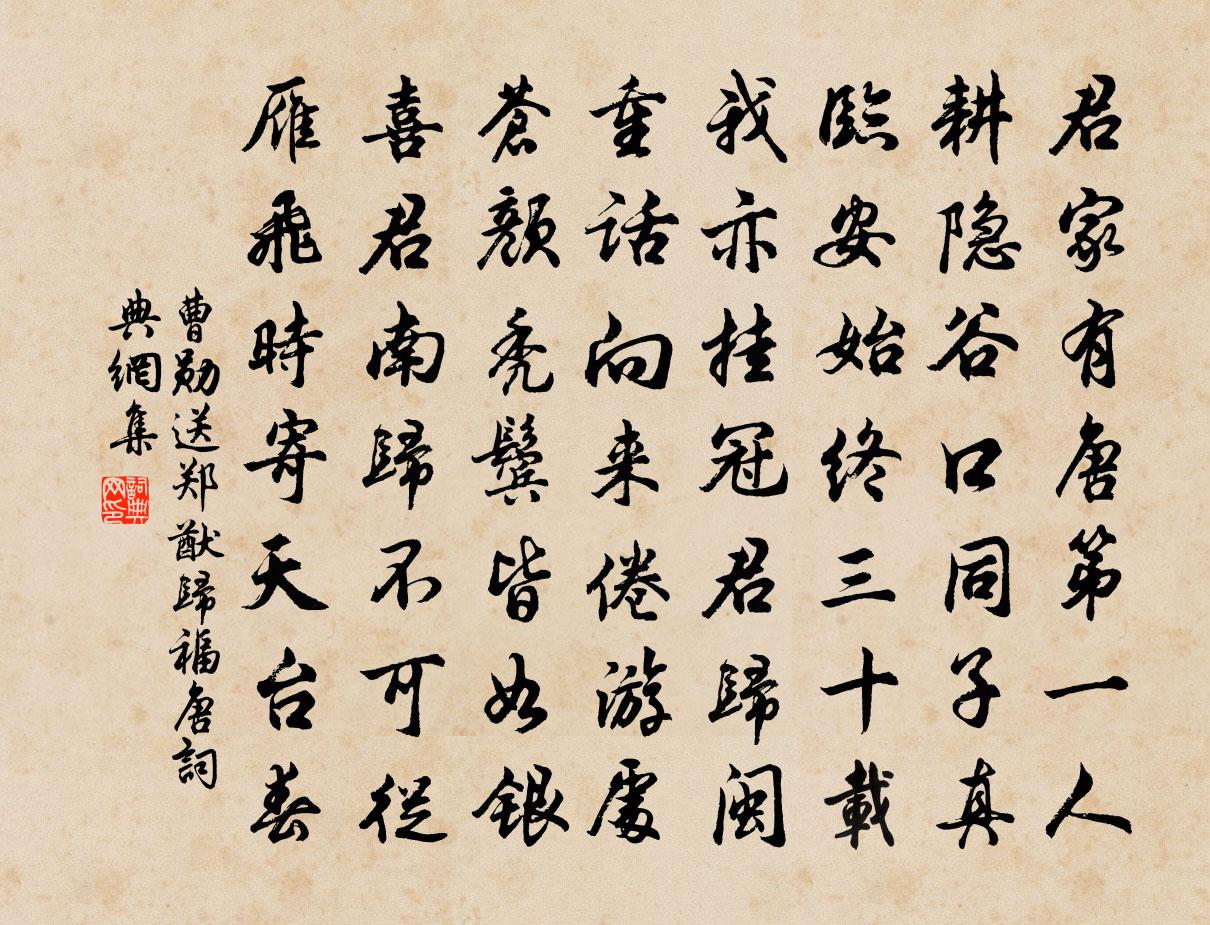 君家有唐第一人
耕隐谷口同子真
臨安始終三十載
我亦挂冠君歸闽
重话向来倦游處
蒼顏秃鬓皆如銀
喜君南歸不可從
雁飛時寄天台春
曹勛送郑猷歸福唐詞
典網集
詞典
网印